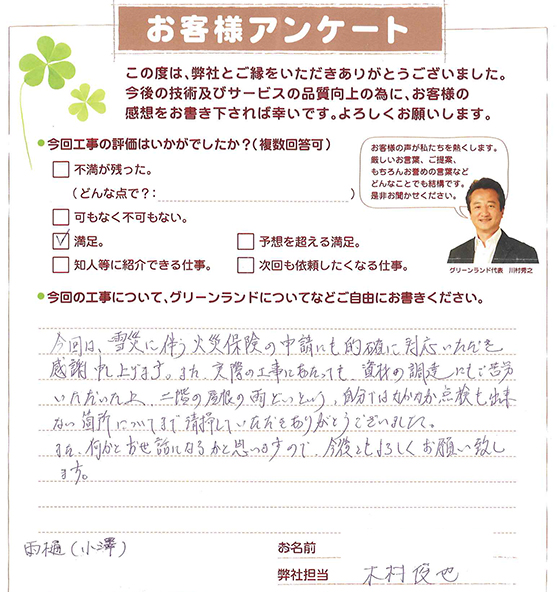 お客様アンケート
この度は、弊社とご縁をいただきありがとうございました。
今後の技術及びサービスの品質向上の為に、お客様の
感想をお書き下されば幸いです。よろしくお願いします。
●今回工事の評価はいかがでしたか？（複数回答可）
□ 不満が残った。
（どんな点で？： ）
□ 可もなく不可もない。
☑ 満足。 □ 予想を超える満足。
□ 知人等に紹介できる仕事。 □ 次回も依頼したくなる仕事。
お客様の声が私たちを熱くします。
厳しいお言葉、ご提案、
もちろんお誉めの言葉など
どんなことでも結構です。
是非お聞かせください。
グリーンランド代表 川村秀之
●今回の工事について、グリーンランドについてなどご自由にお書きください。
今回は、雪災に伴う火災保険の申請にも的確に対応いただき
感謝申し上げます。また、実際の工事にあたっても、資材の調達にもご苦労
いただいた上、二階の屋根の雨どいという、自分ではなかなか点検も出来
ない箇所についてまで清掃していただきありがとうございました。
また、何かとお世話になるかと思いますので、今後ともよろしくお願い致し
ます。
雨樋（小澤）
お名前
弊社担当 木村俊也